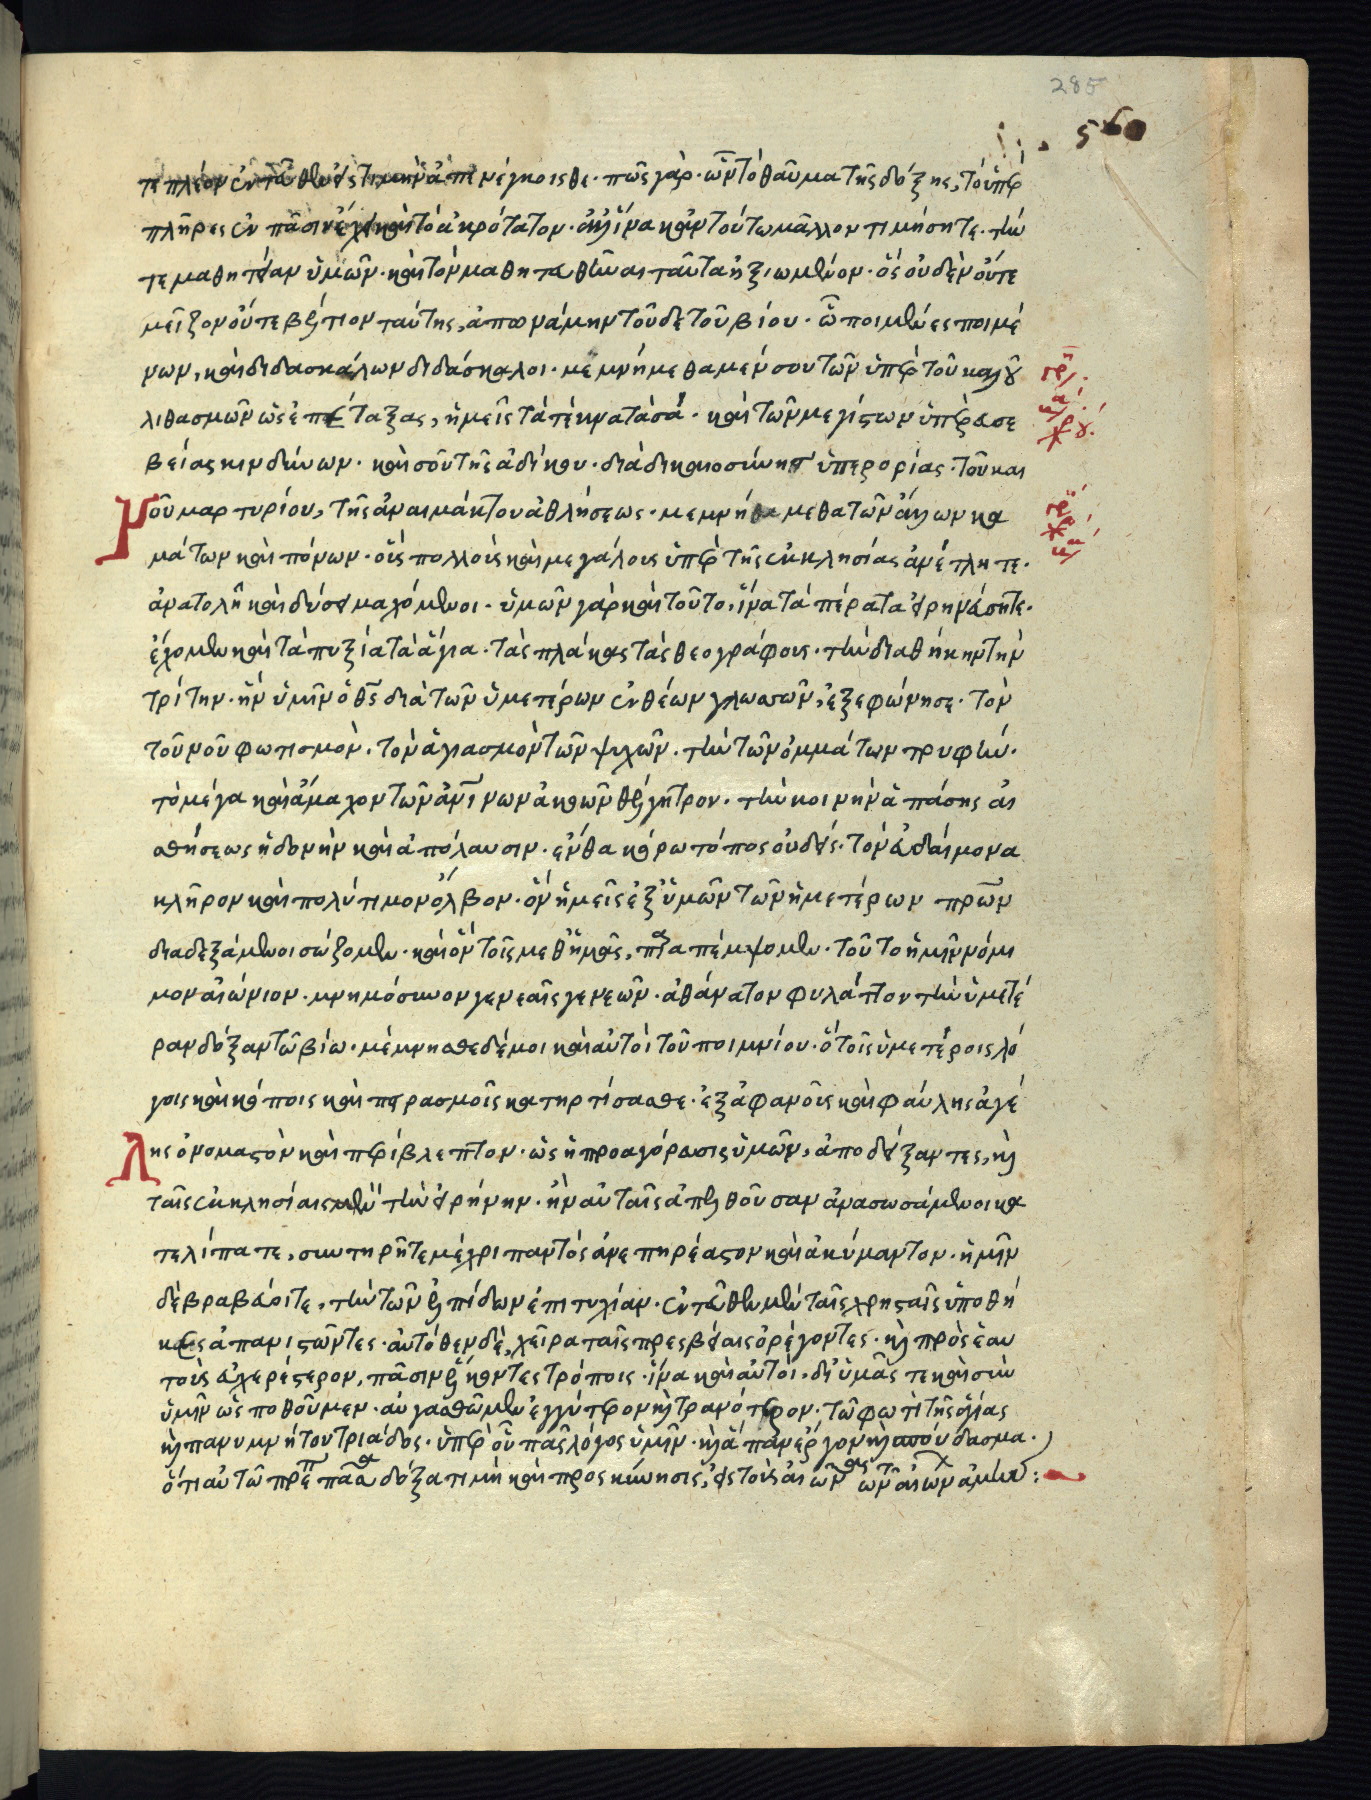 285
560
τε πλέον ἐν τῶ θεῶ εἰς τιμὴν ἀπενέγκοισθε· πῶς γὰρ· ὧν τὸ θαῦμα τῆς δόξης, τὸ ὑπὲρ
πλῆρες ἐν πᾶσιν ἔχει καὶ τὸ ἀκρότατον· ἀλλ' ἵνα κἂν τούτω μᾶλλον τιμήσητε· τήν
τε μαθητείαν ὑμῶν· καὶ τὸν μαθητευθῆναι ταῦτα ἠξιωμένον· ὃς οὐδὲν οὔτε
μεῖζον οὔτε βέλτιον ταύτης, ἀπωνάμην τοῦδε τοῦ βίου· ὦ ποιμένες ποιμέ
νων, καὶ διδασκάλων διδάσκαλοι· μεμνήμεθα μέν σου τῶν ὑπὲρ τοῦ καλοῦ
λιθασμῶν ὡς ἐπέταξας, ἡμεῖς τὰ τέκνα τὰ σά· καὶ τῶν μεγίστων ὑπὲρ εὐσε
βείας κινδύνων· καὶ σοῦ τῆς ἀδίκου· διὰ δικαιοσύνην ὑπερορίας· τοῦ και
νοῦ μαρτυρίου, τῆς ἀναιμάκτου ἀθλήσεως· μεμνήμεθα τῶν ἄλλων κα
μάτων καὶ πόνων· οἷς πολλοῖς καὶ μεγάλοις ὑπὲρ τῆς ἐκκλησίας ἀνέτλητε·
ἀνατολὴ καὶ δύσει μαχόμενοι· ὑμῶν γὰρ καὶ τοῦτο, ἵνα τὰ πέρατα εἰρηνεύσητε·
ἔχομεν καὶ τὰ πυξία τὰ ἅγια· τὰς πλάκας τὰς θεογράφους· τὴν διαθήκην τὴν
τρίτην· ἣν ὑμῖν ὁ θς διὰ τῶν ὑμετέρων ἐνθέων γλωσσῶν, ἐξεφώνησε· τὸν
τοῦ νοῦ φωτισμόν· τὸν ἁγιασμὸν τῶν ψυχῶν· τὴν τῶν ὀμμάτων τρυφήν·
τὸ μέγα καὶ ἄμαχον τῶν ἀνίνων ἀκοῶν θέλγητρον· τὴν κοινὴν ἁπάσης αἰ
σθήσεως ἡδονὴν καὶ ἀπόλαυσιν· ἔνθα κόρω τόπος οὐδείς· τὸν εὐδαίμονα
κλῆρον καὶ πολύτιμον ὄλβον· ὃν ἡμεῖς ἐξ ὑμῶν τῶν ἡμετέρων πρων
διαδεξάμενοι σώζομεν· καὶ ὃν τοῖς μεθ' ἡμᾶς, παραπέμψομεν· τοῦτο ἡμῖν νόμι
μον αἰώνιον· μνημόσυνον γενεαῖς γενεῶν· ἀθάνατον φυλάττον τὴν ὑμετέ
ραν δόξαν τῶ βίω· μέμνησθε δέ μοι καὶ αὐτοὶ τοῦ ποιμνίου· ὃ τοῖς ὑμετέροις λό
γοις καὶ κόποις καὶ πειρασμοῖς κατηρτίσασθε· ἐξ ἀφανοῦς καὶ φαύλης ἀγέ
λης ὀνομαστὸν καὶ περίβλεπτον· ὡς ἡ προαγόρευσις ὑμῶν, ἀποδείξαντες, καὶ
ταῖς ἐκκλησίαις μὲν τὴν εἰρήνην· ἣν αὐταῖς ἀπελθοῦσαν ἀνασωσάμενοι κα
τελίπατε, συντηρῆτε μέχρι παντὸς ἀνεπηρέαστον καὶ ἀκύμαντον· ἡμῖν
δὲ βραβεύοιτε, τὴν τῶν ἐλπίδων ἐπιτυχίαν· ἐνταῦθα μὲν ταῖς χρησταῖς ὑποθή
καις ἀπανιστῶντες· αὐτόθεν δὲ, χεῖρα ταῖς πρεσβείαις ὀρέγοντες· καὶ πρὸς ἑαυ
τοὺς εὐχερέστερον, πᾶσιν ἕλκοντες τρόποις· ἵνα καὶ αὐτοὶ, δι' ὑμᾶς τε καὶ σὺν
ὑμῖν ὡς ποθοῦμεν· αὐγασθῶμεν ἐγγύτερον καὶ τρανότερον· τῶ φωτὶ τῆς ἁγίας
καὶ πανυμνήτου τριάδος· ὑπὲρ οὗ πᾶς λόγος ὑμῖν· καὶ ἅπαν ἔργον καὶ σπούδασμα·
ὅτι αὐτῶ πρέπει πᾶσα δόξα τιμὴ καὶ προσκύνησις, εἰς τοὺς αἰῶνας τῶν αἰώνων ἀμήν: